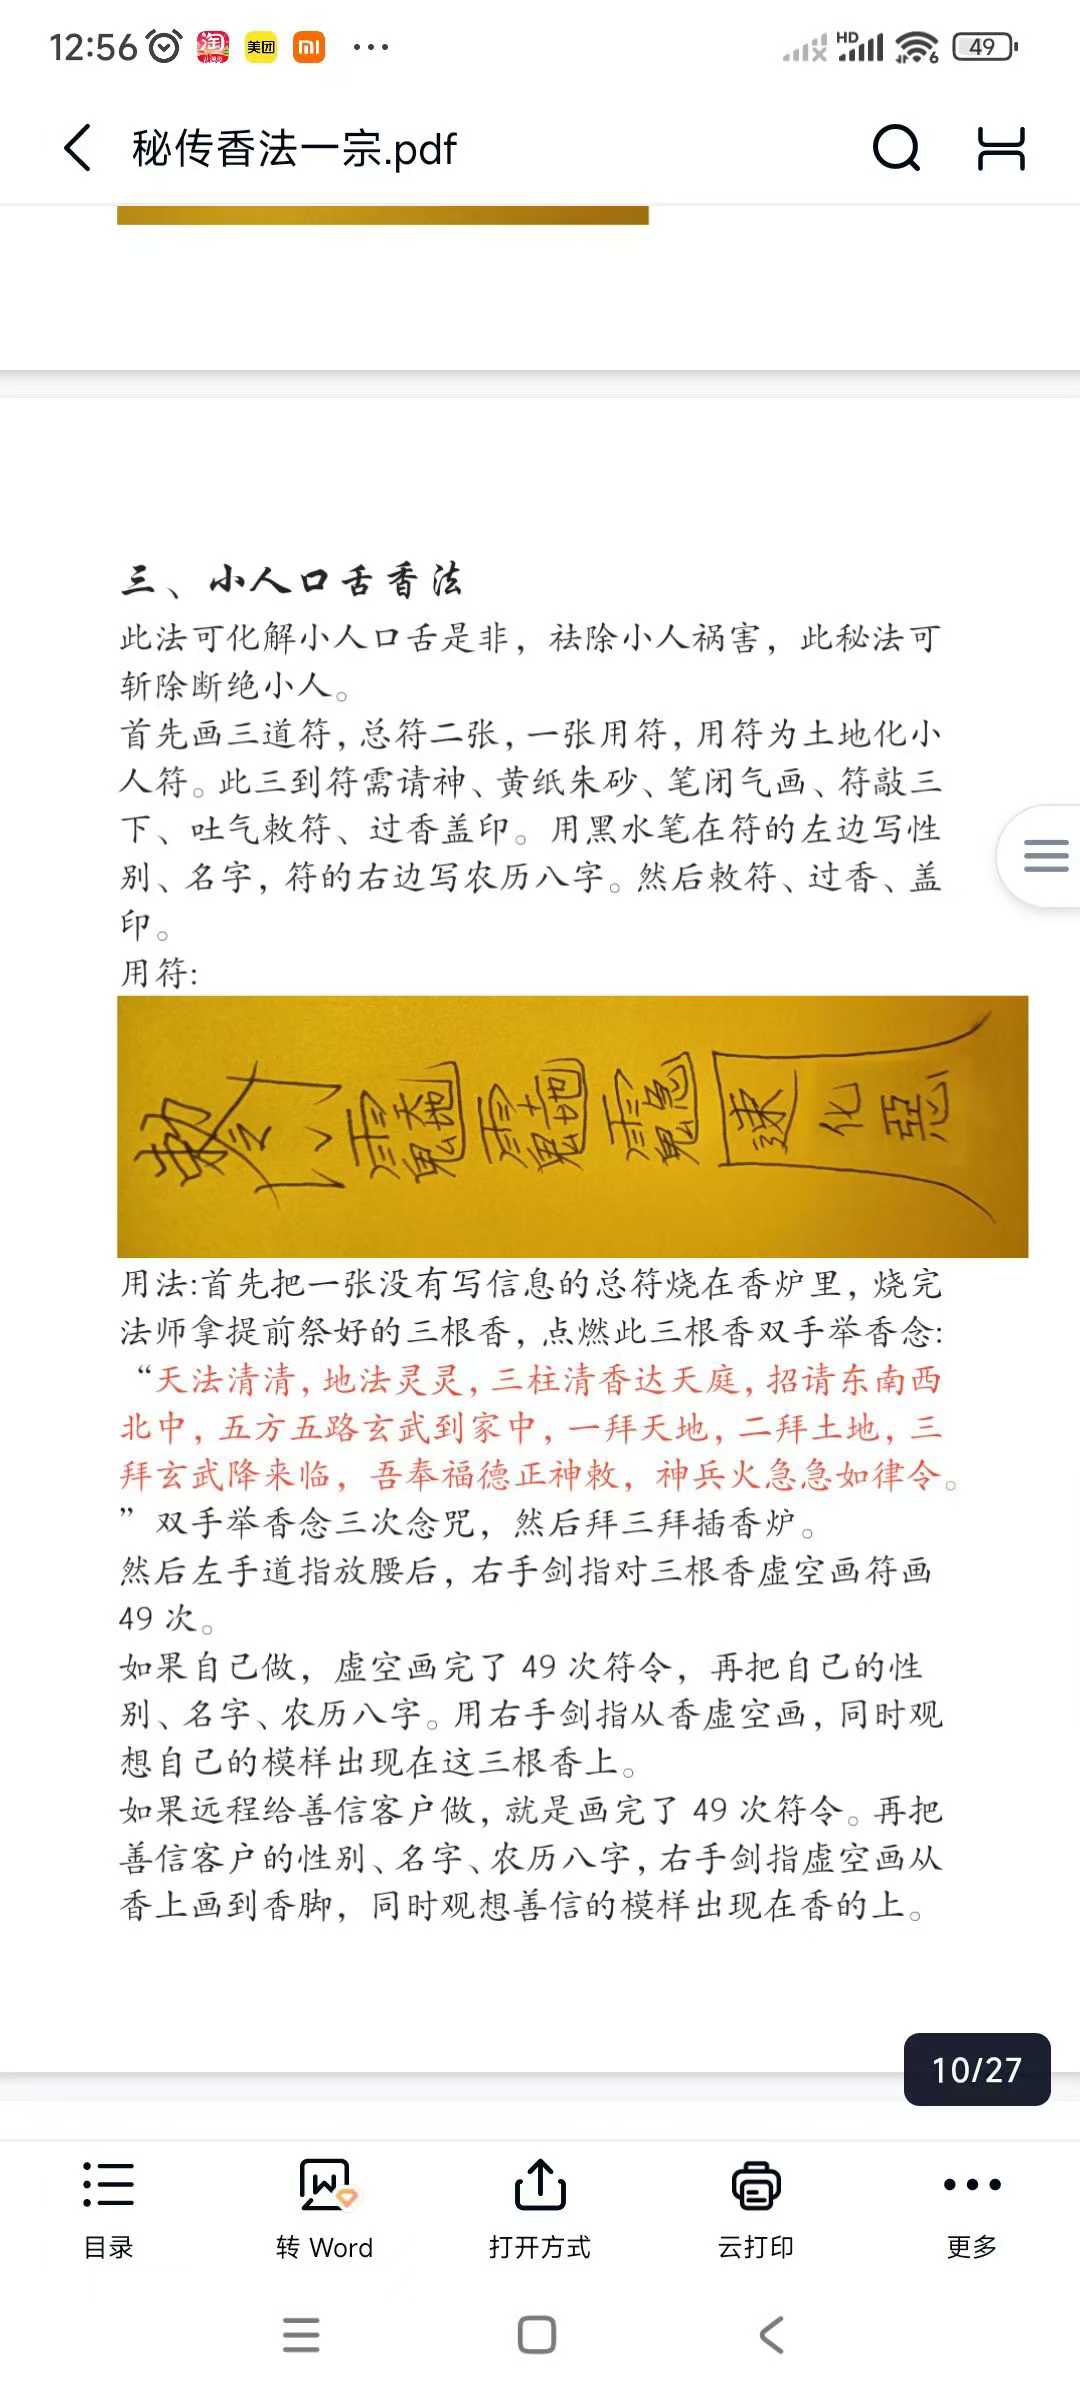 12:56
淘
美团
HD
6
49
秘传香法一宗.pdf
三、小人口舌香法
此法可化解小人口舌是非，祛除小人祸害，此秘法可
斩除断绝小人。
首先画三道符，总符二张，一张用符，用符为土地化小
人符。此三到符需请神、黄纸朱砂、笔闭气画、符敲三
下、吐气敕符、过香盖印。用黑水笔在符的左边写性
别、名字，符的右边写农历八字。然后敕符、过香、盖
印。
用符:
化
惡
用法:首先把一张没有写信息的总符烧在香炉里，烧完
法师拿提前祭好的三根香，点燃此三根香双手举香念:
“天法清清，地法灵灵，三柱清香达天庭，招请东南西
北中，五方五路玄武到家中，一拜天地，二拜土地，三
拜玄武降来临，吾奉福德正神敕，神兵火急急如律令。
”双手举香念三次念咒，然后拜三拜插香炉。
然后左手道指放腰后，右手剑指对三根香虚空画符画
49 次。
如果自己做，虚空画完了 49 次符令，再把自己的性
别、名字、农历八字。用右手剑指从香虚空画，同时观
想自己的模样出现在这三根香上。
如果远程给善信客户做，就是画完了 49 次符令。再把
善信客户的性别、名字、农历八字，右手剑指虚空画从
香上画到香脚，同时观想善信的模样出现在香的上。
10/27
目录
转 Word
打开方式
云打印
更多